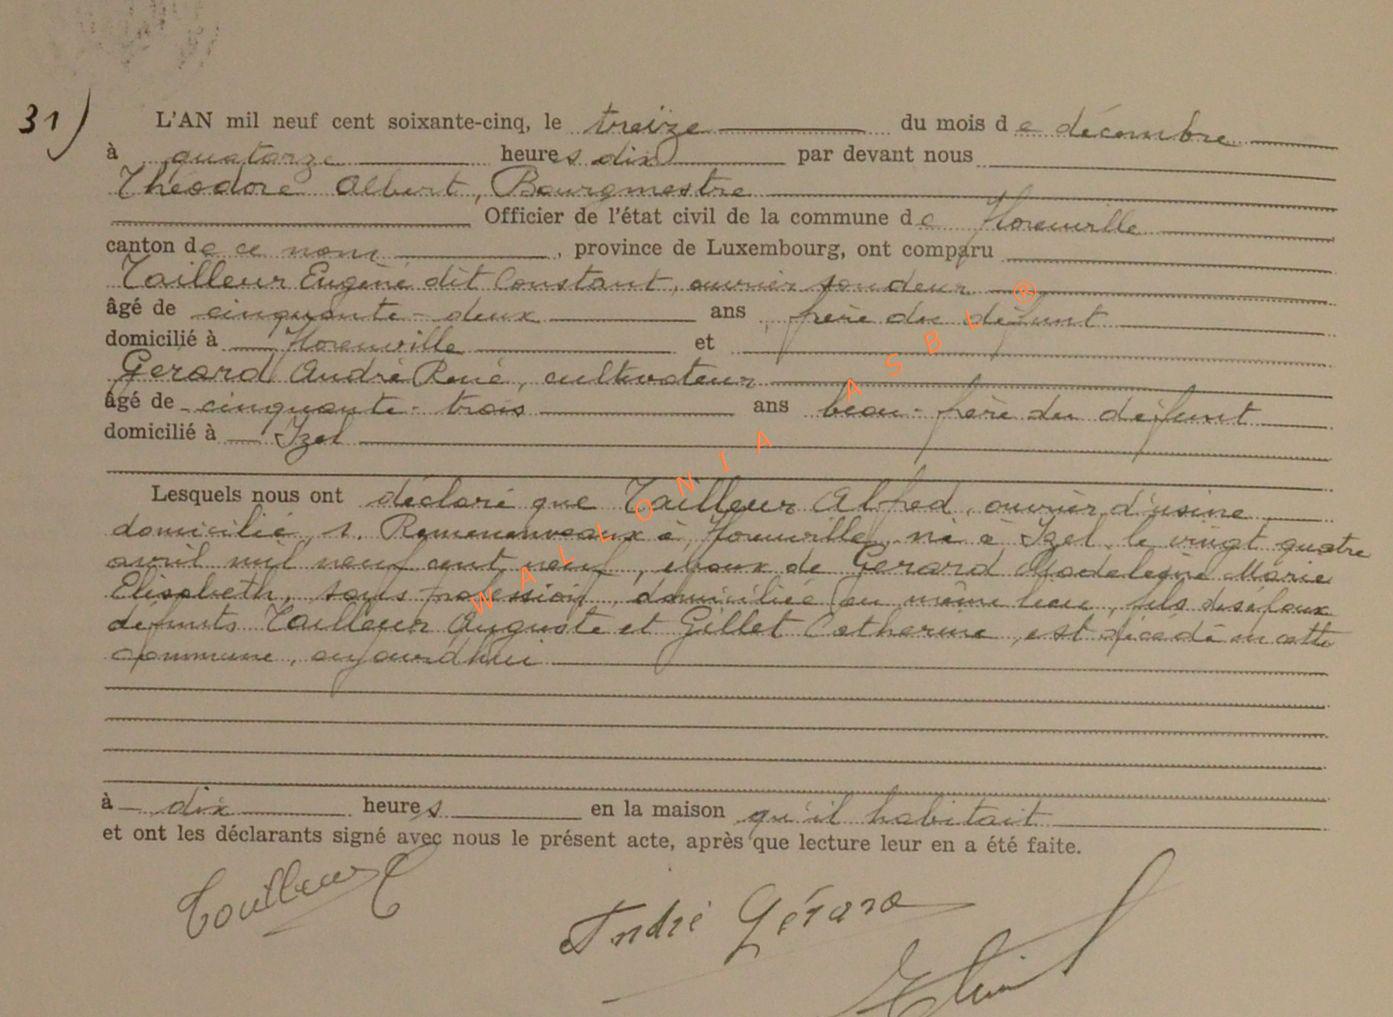 31)
L'AN mil neuf cent soixante-cinq, le treize du mois de décembre
à quatorze heures dix par devant nous
Théodore Albert, Bourgmestre
Officier de l'état civil de la commune de Florenville
canton de ce nom, province de Luxembourg, ont comparu
Tailleur Eugène dit Constant, ouvrier soudeur
âgé de cinquante-deux ans, frère du défunt
domicilié à Florenville et
Gerard André René, cultivateur
âgé de cinquante-trois ans beau-frère du défunt
domicilié à Izel
Lesquels nous ont déclaré que Tailleur Alfred, ouvrier d'usine
domicilié, 1. à Florenville, né à Izel, le vingt quatre
avril mil neuf cent neuf, époux de Gerard Madeleine Marie
Elisabeth, sans profession, domiciliée au même lieu, fils des époux
défunts Tailleur Auguste et Gillet Catherine, est décédé en cette
commune, aujourd'hui
à dix heures en la maison qu'il habitait
et ont les déclarants signé avec nous le présent acte, après que lecture leur en a été faite.
Tailleur C
André Gérard
WALLONIA ASBL ®